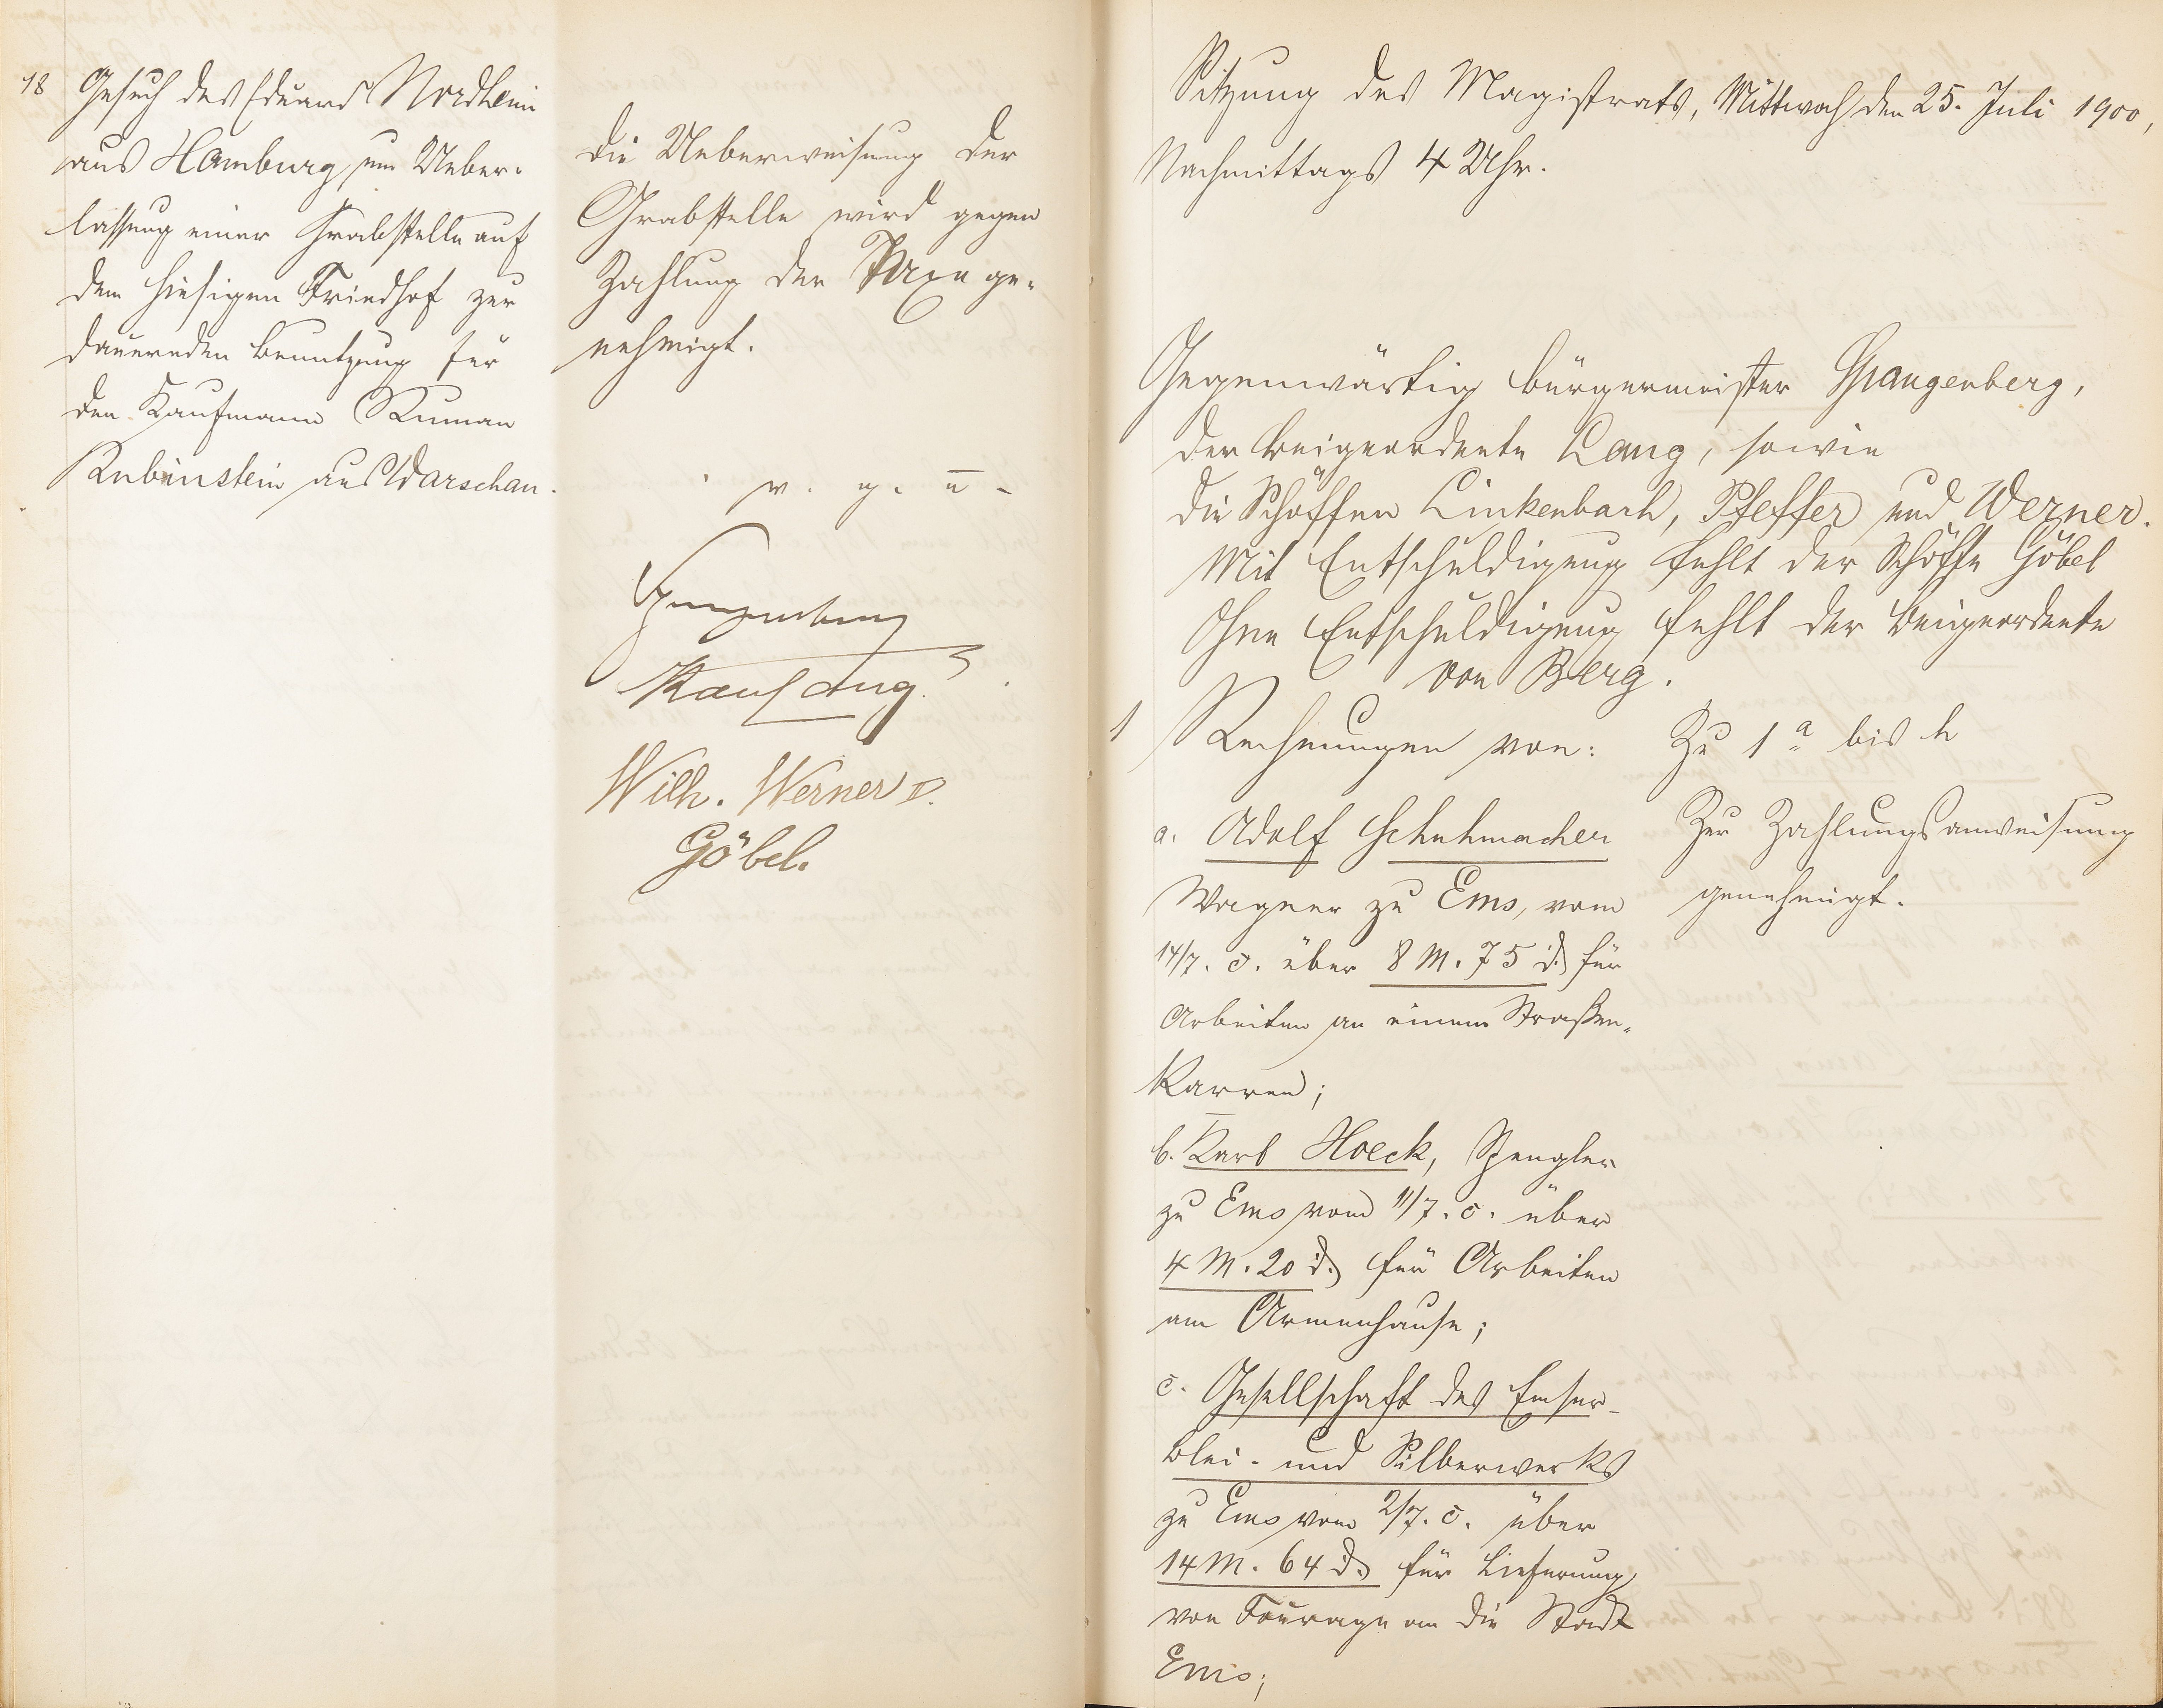 18 Gesuch des Eduard Nordheim
aus Hamburg um Ueber-
lassung einer Grabstelle auf
dem hiesigen Friedhof zur
dauernden Benutzung für
den Kaufmann Ruman
Rubinstein aus Warschau.
Die Ueberweisung der
Grabstelle wird gegen
Zahlung der Taxe ge-
nehmigt.
v. g. u.
Spangenberg
Karl Lang
Wilh. Werner II.
Göbel.
Sitzung des Magistrats, Mittwoch den 25. Juli 1900,
Nachmittags 4 Uhr.
Gegenwärtig Bürgermeister Spangenberg,
der Beigeordnete Lang, sowie
die Schöffen Linkenbach, Pfeffer und Werner.
Mit Entschuldigung fehlt der Schöffe Göbel
Ohne Entschuldigung fehlt der Beigeordnete
von Berg.
1 Rechnungen von:
a. Adolf Schuhmacher
Wagner zu Ems, vom
14/7. c. über 8 M. 75 d. für
Arbeiten an einem Straßen-
karren;
b. Karl Hoeck, Spengler
zu Ems vom 11/7. c. über
4 M. 20 d. für Arbeiten
am Armenhause;
c. Gesellschaft des Emser-
Blei- und Silberwerks
zu Ems vom 2/7. c. über
14 M. 64 d. für Lieferung
von Fourage an die Stadt
Ems;
Zu 1 a bis h
Zur Zahlungsanweisung
genehmigt.